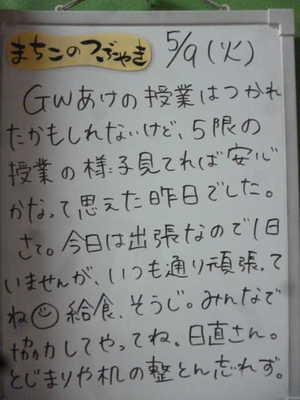 まちこのつぶやき 5/9(火)
GWあけの授業はつかれ
たかもしれないけど、5限の
授業の様子見てれば安心
かなって思えた昨日でした。
さて。今日は出張なので1日
いませんが、いつも通り頑張って
ね☺給食、そうじ。みんなで
協力してやってね。日直さん。
とじまりや机の整とん忘れず。